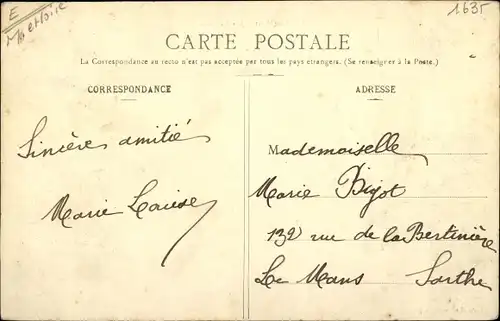 E
1635
CARTE POSTALE
La Correspondance au recto n'est pas acceptée par tous les pays étrangers. (Se renseigner à la Poste.)
CORRESPONDANCE
ADRESSE
Sincère amitié
Marie Louise
Mademoiselle
Marie Bigot
132 rue de la Bertinière
Le Mans Sarthe